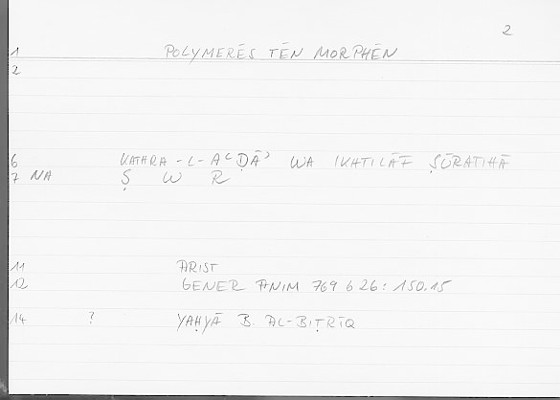 2
1 POLYMERĒS TĒN MORPHĒN
2
6 KATHRA-L-AʿḌĀʾ WA IKHTILĀF ṢŪRATIHĀ
7 NA Ṣ W R
11 ARIST
12 GENER ANIM 769 b 26: 150.15
14 ? YAḤYĀ B. AL-BIṬRĪQ